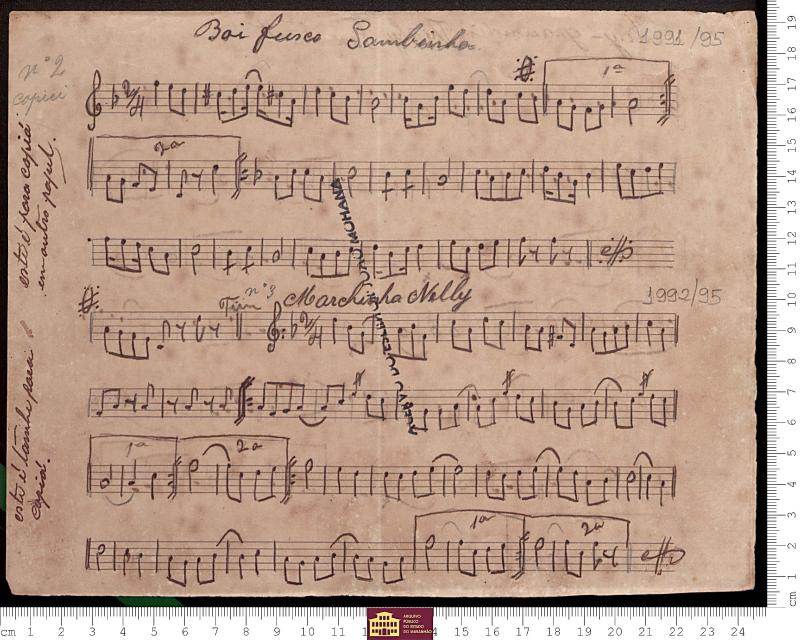 Boi fusco Sambinha
1991/95
nº 2
copiei
1ª
este é para copiá
em outro papel.
2ª
Fim
nº 3
Marchinha Nelly
1992/95
este é tambem para
copiá.
1ª
2ª
1ª
2ª
ARQUIVO
PÚBLICO
DO ESTADO
DO MARANHÃO
cm 1 2 3 4 5 6 7 8 9 10 11 12 13 14 15 16 17 18 19 20 21 22 23 24
cm 1 2 3 4 5 6 7 8 9 10 11 12 13 14 15 16 17 18 19